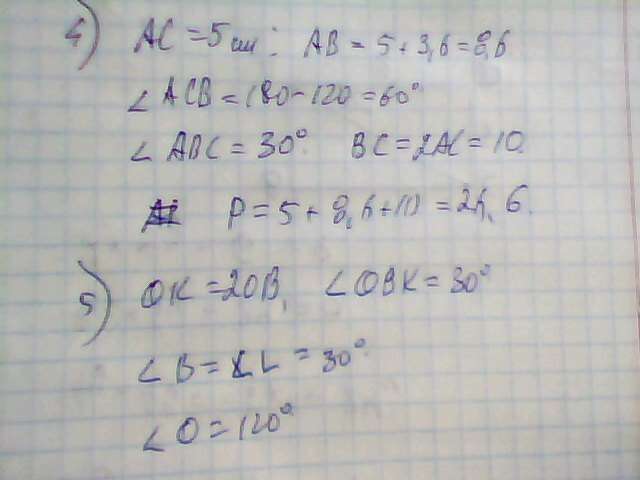 4) AC = 5 см; AB = 5 + 3,6 = 8,6
∠ ACB = 180 - 120 = 60°
∠ ABC = 30° BC = 2AC = 10.
P = 5 + 8,6 + 10 = 21,6.
5) OK = 2OB, ∠OBK = 30°
∠ B = ∠ L = 30°
∠ O = 120°